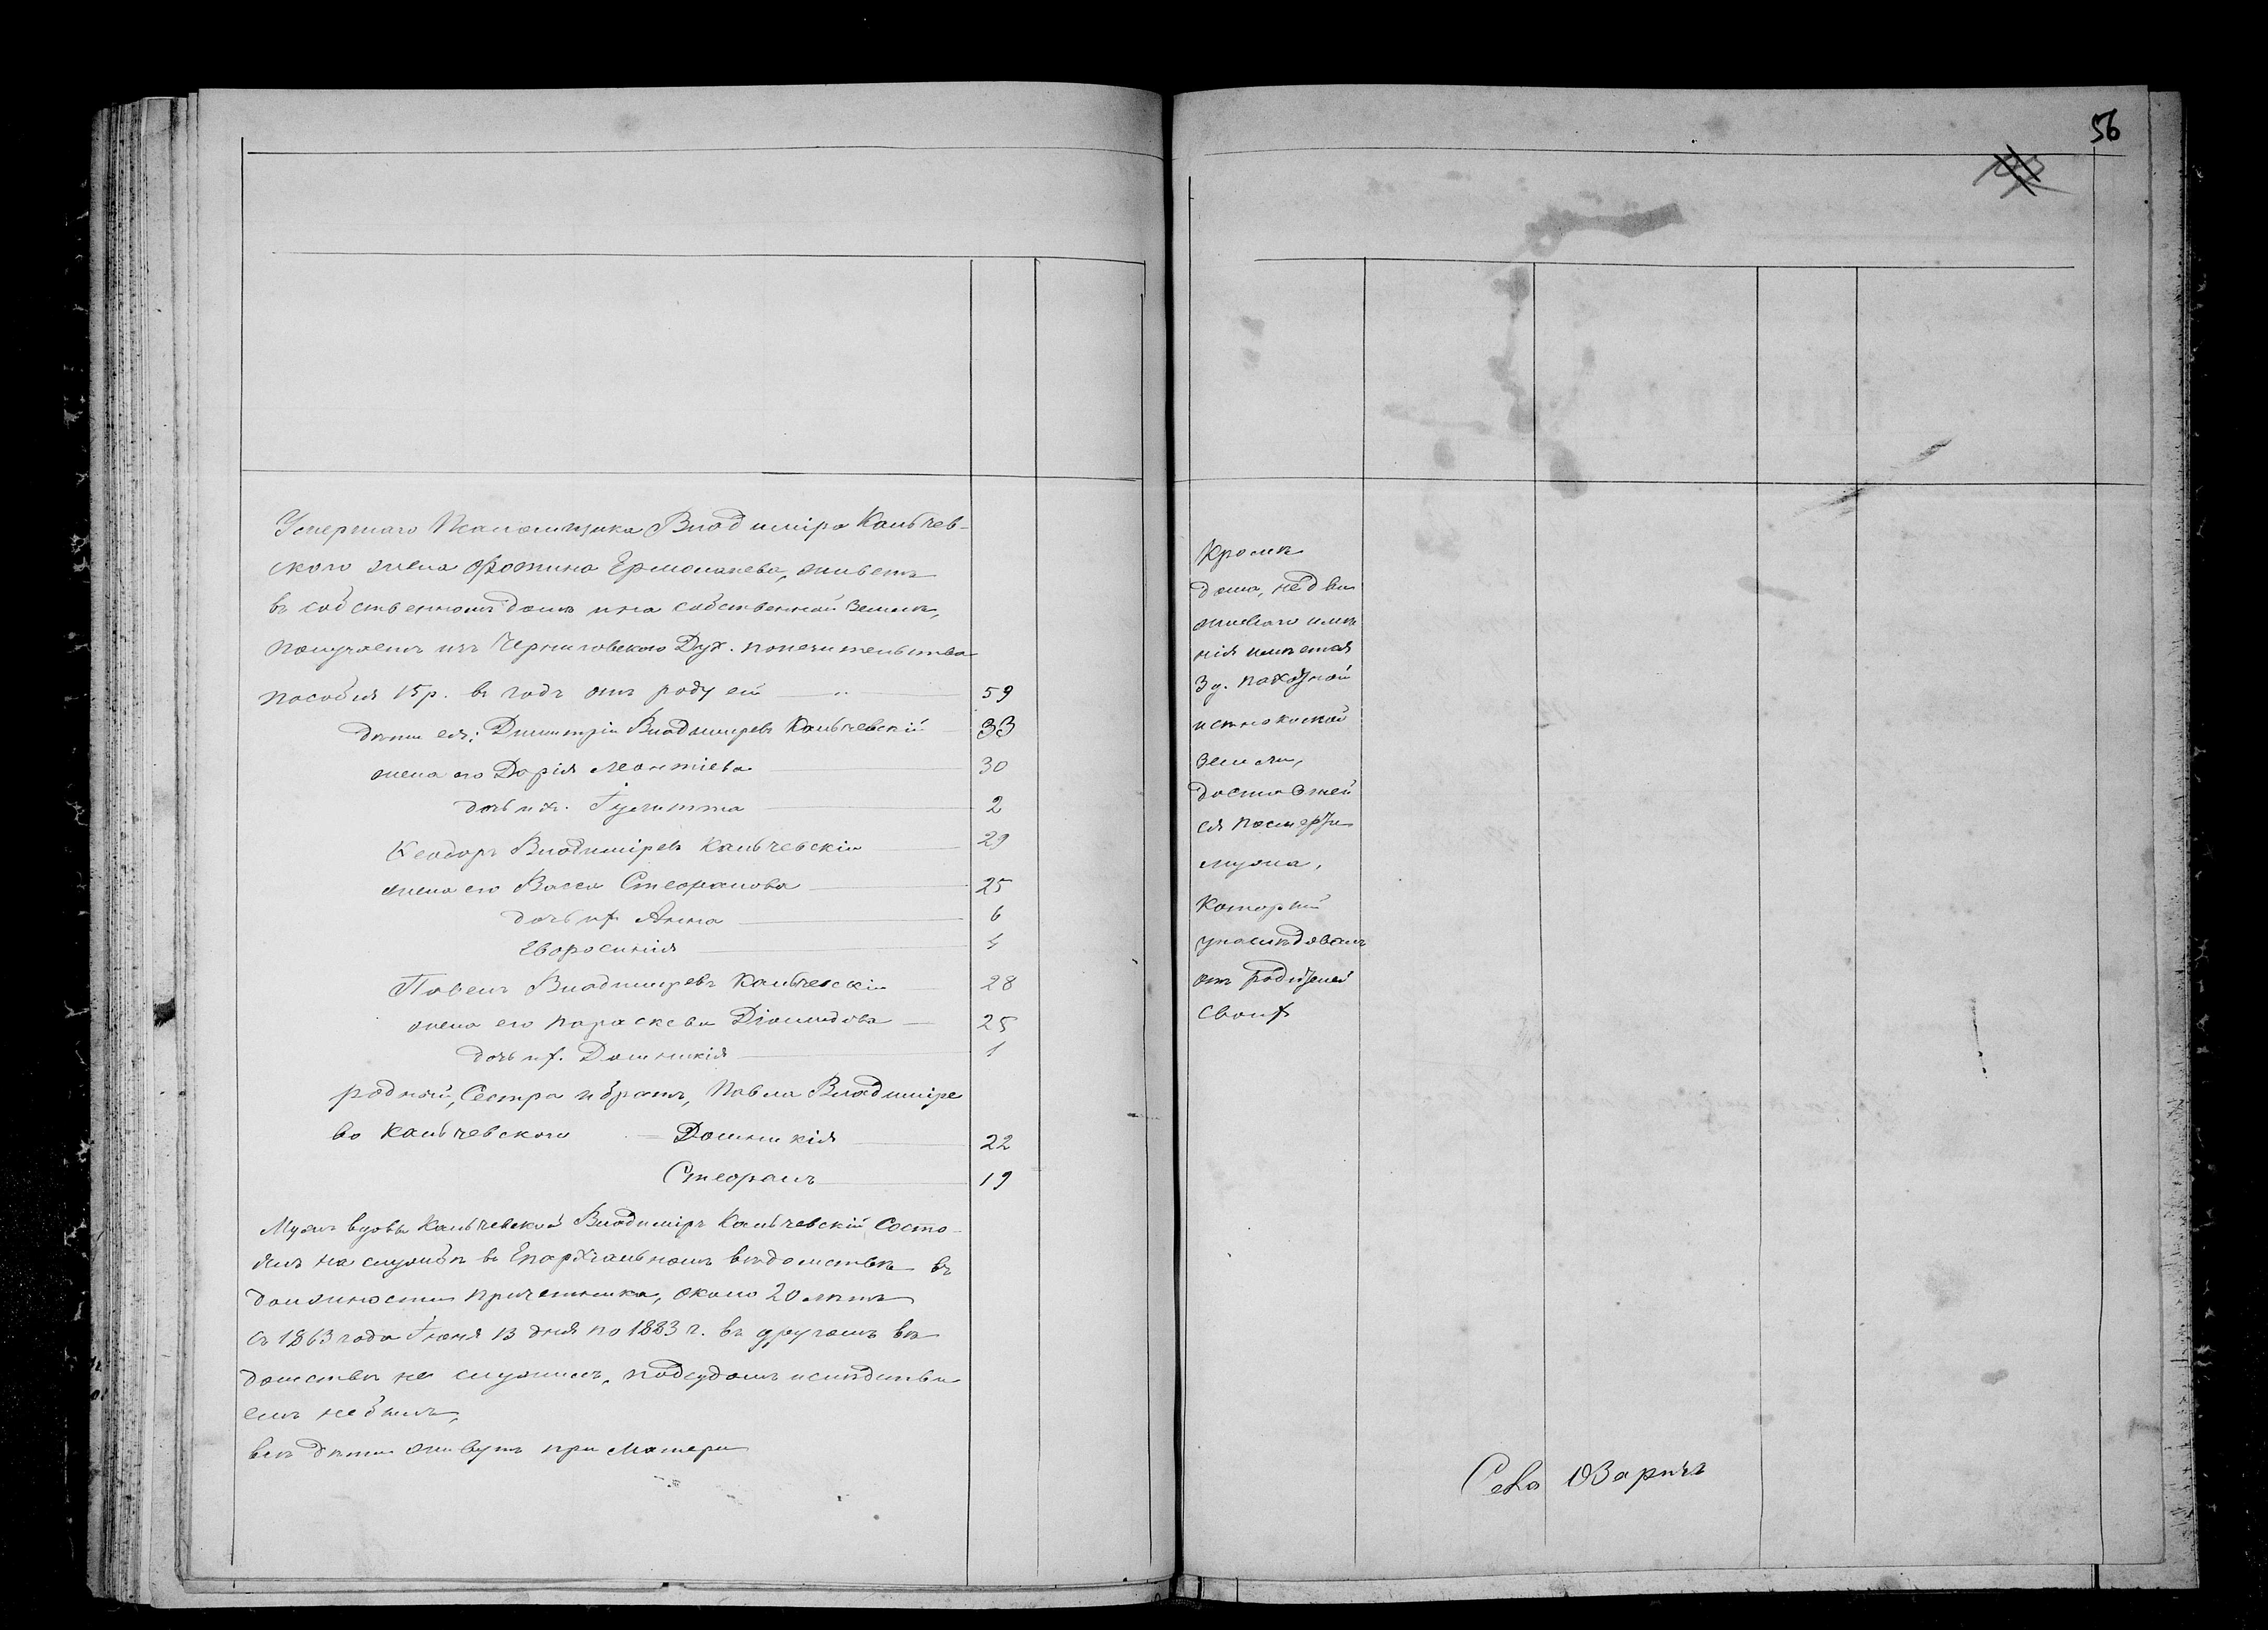 56
Умершаго Псаломщика Владиміра Кальчев-
скаго жена Фотина Ермолаева, живетъ
въ собственномъ домѣ и на собственной землѣ,
получаетъ изъ Черниговскаго Дух. попечительства
пособія 15 р. въ годъ отъ роду ей 59
дѣти ея: Димитрій Владиміровъ Кальчевскій 33
жена его Дарія Леонтіева 30
дочь их. Іулитта 2
Ѳеодоръ Владиміровъ Кальчевскій 29
жена его Васса Стефанова 25
дочь их Анна 6
Евфросинія
Павелъ Владиміровъ Кальчевскій 28
жена его Параскева Діомидова 25
дочь их. Домникія 1
родной, Сестра и братъ, Павла Владиміро
ва Кальчевскаго Домникія 22
Стефанъ 19
Мужъ вдовы Кальчевской Владиміръ Кальчевскій Состо-
ялъ на службѣ въ Епархіальномъ вѣдомствѣ въ
должности причетника, около 20 лѣтъ
съ 1863 года Іюня 13 дня по 1883 г. въ другомъ вѣ
домствѣ не служилъ, подсудомъ и слѣдстви
емъ небылъ,
всѣ дѣти живутъ при Матери
Кромѣ
дома, недви
жимаго имѣ
нія имѣется
3 д. пахатной
и сѣнокосной
земли,
доставшей
ся посмерти
мужа,
Который
унаслѣдовалъ
отъ родителей
Своих
Села